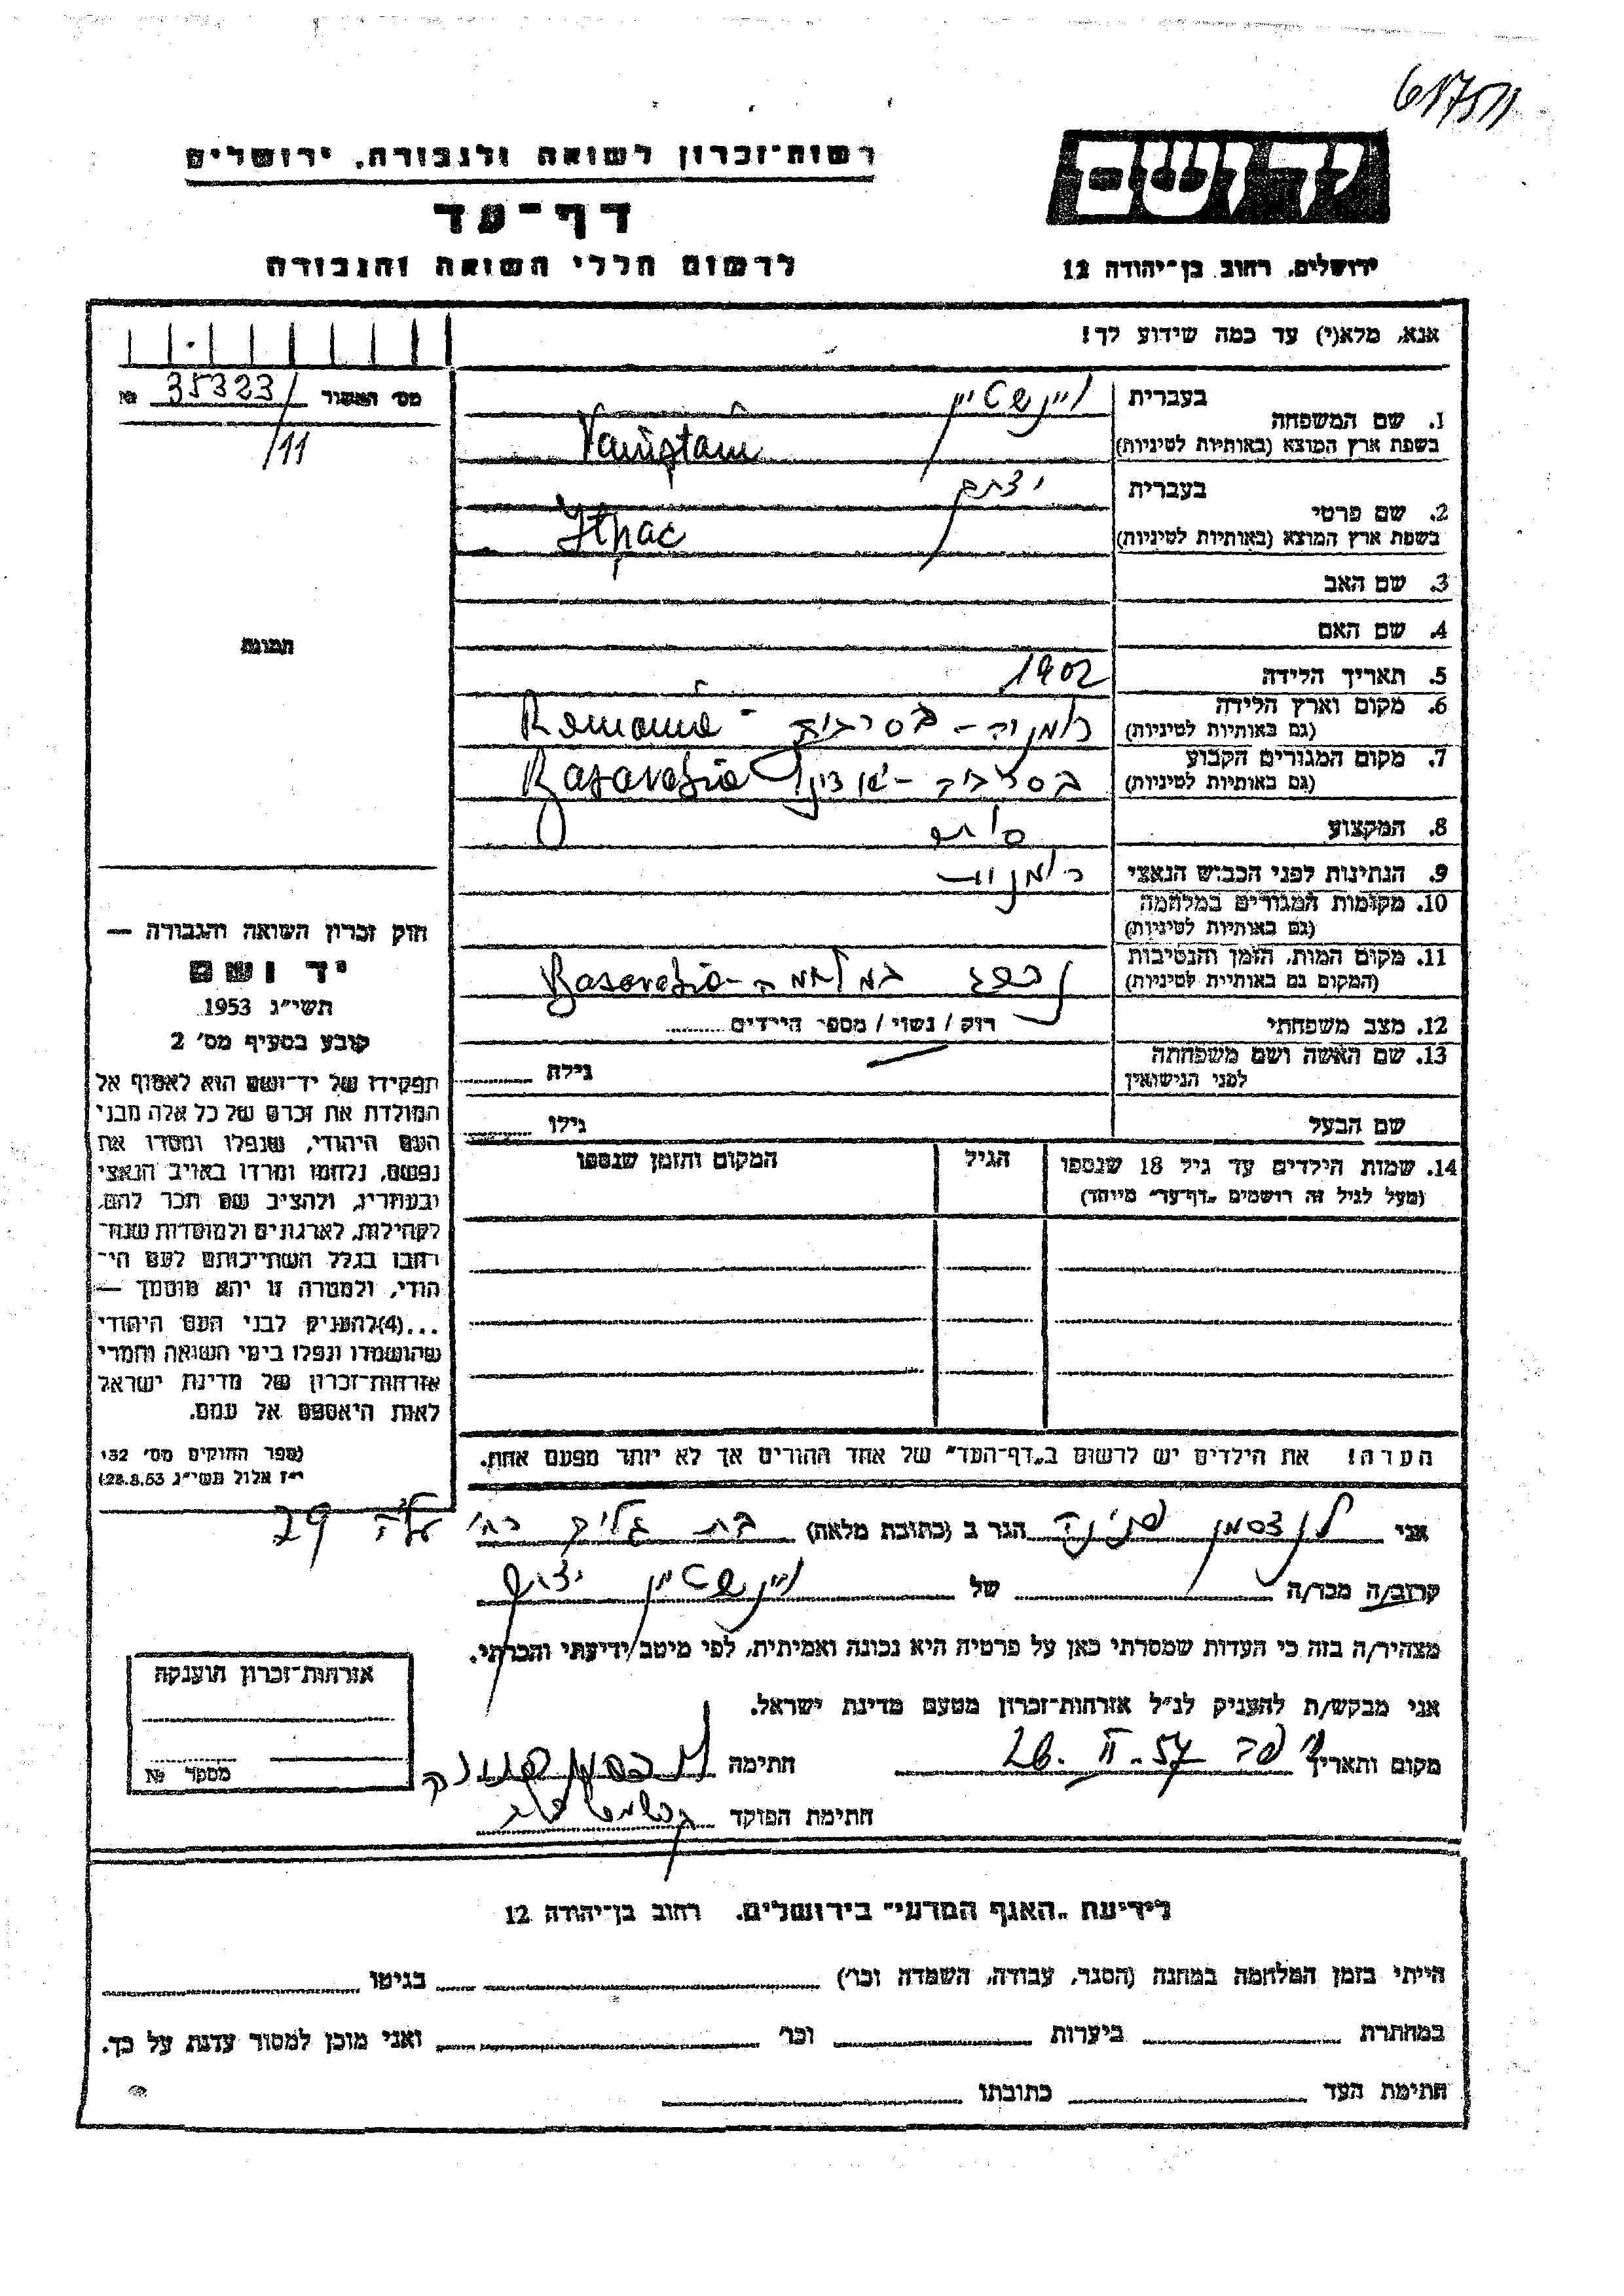 617511
רשות־זכרון לשואה ולגבורה, ירושלים
דף־עד
לרשום חללי השואה והגבורה
יד ושם
ירושלים, רחוב בן־יהודה 12
אנא, מלא(י) עד כמה שידוע לך!
מס׳ האשור 35323 №
/11
תמונה
1. שם המשפחה
בעברית ויינשטיין
בשפת ארץ המוצא (באותיות לטיניות) Vainştain
2. שם פרטי
בעברית יצחק
בשפת ארץ המוצא (באותיות לטיניות) Ithac
3. שם האב
4. שם האם
5. תאריך הלידה 1902
6. מקום וארץ הלידה
(גם באותיות לטיניות) רומניה - בסרביה - Romania
7. מקום המגורים הקבוע
(גם באותיות לטיניות) בסרביה - Basarabia
8. המקצוע סוחר
9. הנתינות לפני הכבוש הנאצי רומנית
10. מקומות המגורים במלחמה
(גם באותיות לטיניות)
11. מקום המות, הזמן והנסיבות
(המקום גם באותיות לטיניות) נהרג במלחמה - Basarabia
12. מצב משפחתי רוק / נשוי / מספר הילדים
13. שם האשה ושם משפחתה
לפני הנישואין גילה
שם הבעל גילו
14. שמות הילדים עד גיל 18 שנספו הגיל המקום והזמן שנספו
(מעל לגיל זה רושמים „דף־עד״ מיוחד)
הערה! את הילדים יש לרשום ב„דף־העד״ של אחד ההורים אך לא יותר מפעם אחת.
חוק זכרון השואה והגבורה —
יד ושם
תשי״ג 1953
קובע בסעיף מס׳ 2
תפקידו של יד־ושם הוא לאסוף אל
המולדת את זכרם של כל אלה מבני
העם היהודי, שנפלו ומסרו את
נפשם, נלחמו ומרדו באויב הנאצי
ובעוזריו, ולהציב שם וזכר להם,
לקהילות, לארגונים ולמוסדות שנח־
רבו בגלל השתייכותם לעם הי־
הודי, ולמטרה זו יהא מוסמך —
...(4)להעניק לבני העם היהודי
שהושמדו ונפלו בימי השואה והמרי
אזרחות־זכרון של מדינת ישראל
לאות היאספם אל עמם.
(ספר החוקים מס׳ 132
י״ז אלול תשי״ג 28.8.53)
אני הגר ב (כתובת מלאה) בת גלים רח׳ 29
קרוב/ה מכר/ה של ויינשטיין יצחק
מצהיר/ה בזה כי העדות שמסרתי כאן על פרטיה היא נכונה ואמיתית, לפי מיטב ידיעתי והכרתי.
אני מבקש/ת להעניק לנ״ל אזרחות־זכרון מטעם מדינת ישראל.
מקום ותאריך חיפה 26.II.57 חתימה
חתימת הפוקד
אזרחות־זכרון הוענקה
מספר №
לידיעת „האגף המדעי״ בירושלים, רחוב בן־יהודה 12
הייתי בזמן המלחמה במחנה (הסגר, עבודה, השמדה וכו׳) בגיטו
במחתרת ביערות וכו׳ ואני מוכן למסור עדות על כך.
חתימת העד כתובתו